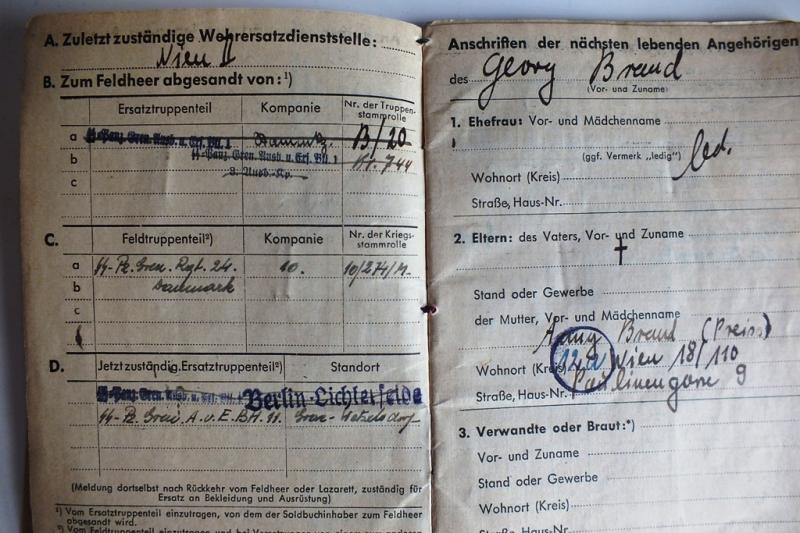 A. Zuletzt zuständige Wehrersatzdienststelle:
Wien II
B. Zum Feldheer abgesandt von:¹)
Ersatztruppenteil Kompanie Nr. der Truppenstammrolle
a 1 Stammkp. B/20
b SS-Panz. Gren. Ausb. u. Ers. Btl. 1 Nr. 744
3. Ausb.-Kp.
c
C. Feldtruppenteil²) Kompanie Nr. der Kriegsstammrolle
a SS-Pz. Gren. Rgt. 24. 10. 10/274/M.
b Danmark
c
D. Jetzt zuständig. Ersatztruppenteil²) Standort
SS-Panz. Gren. Ausb. u. Ers. Btl. 1 Berlin-Lichterfelde
SS-Pz. Gren. A. u. E. Btl. 11. Graz-Wetzelsdorf
(Meldung dortselbst nach Rückkehr vom Feldheer oder Lazarett, zuständig für
Ersatz an Bekleidung und Ausrüstung)
¹) Vom Ersatztruppenteil einzutragen, von dem der Soldbuchinhaber zum Feldheer
abgesandt wird.
²) Vom Feldtruppenteil einzutragen und bei
Anschriften der nächsten lebenden Angehörigen
des Georg Brand
(Vor- und Zuname)
1. Ehefrau: Vor- und Mädchenname
(ggf. Vermerk „ledig") led.
Wohnort (Kreis)
Straße, Haus-Nr.
2. Eltern: des Vaters, Vor- und Zuname
†
Stand oder Gewerbe
der Mutter, Vor- und Mädchenname
Brand (Preiss)
Wohnort (Kreis) 12a Wien 18/110
Straße, Haus-Nr. Paulinengasse 9
3. Verwandte oder Braut:*)
Vor- und Zuname
Stand oder Gewerbe
Wohnort (Kreis)
Straße, Haus-Nr.